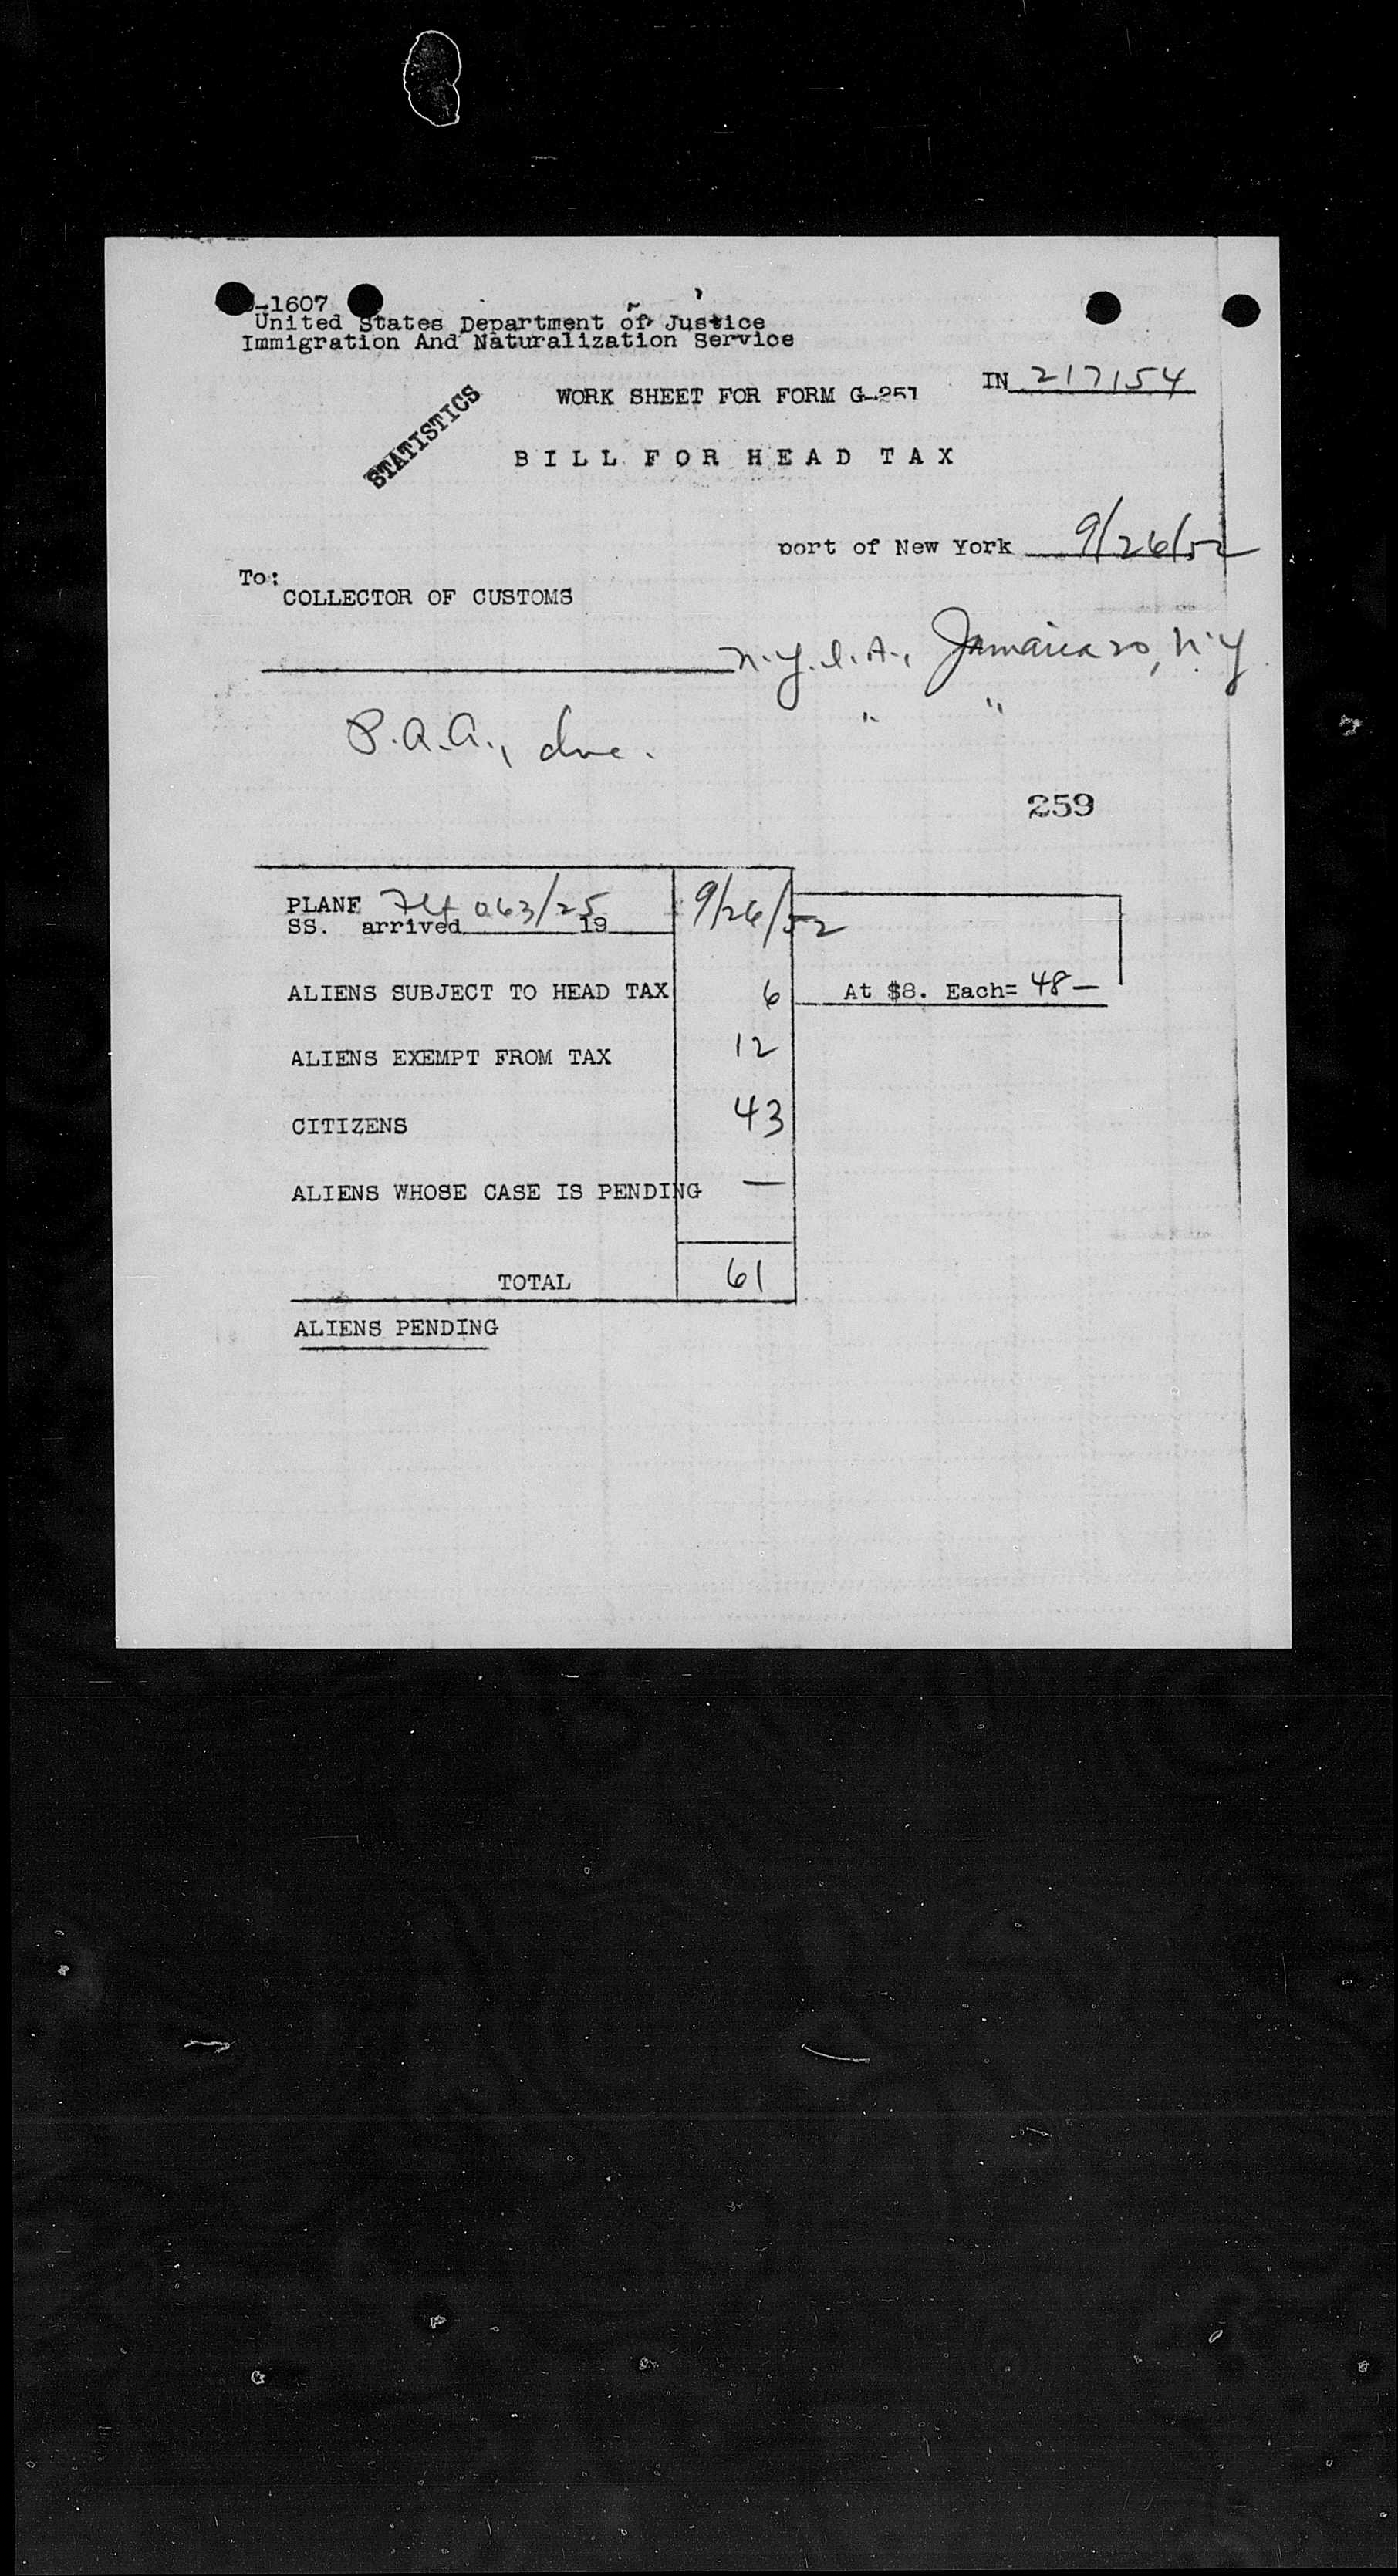 -1607
United States Department of Justice
Immigration And Naturalization Service
IN 217154
WORK SHEET FOR FORM G-251
STATISTICS
BILL FOR HEAD TAX
port of New York 9/26/52
To:
COLLECTOR OF CUSTOMS
N.Y.I.A., Jamaica 20, N.Y.
P.A.A., Inc. " "
259
PLANE Flt 063/25 9/26/52
SS. arrived 19
ALIENS SUBJECT TO HEAD TAX 6 At $8. Each= 48 —
ALIENS EXEMPT FROM TAX 12
CITIZENS 43
ALIENS WHOSE CASE IS PENDING —
TOTAL 61
ALIENS PENDING